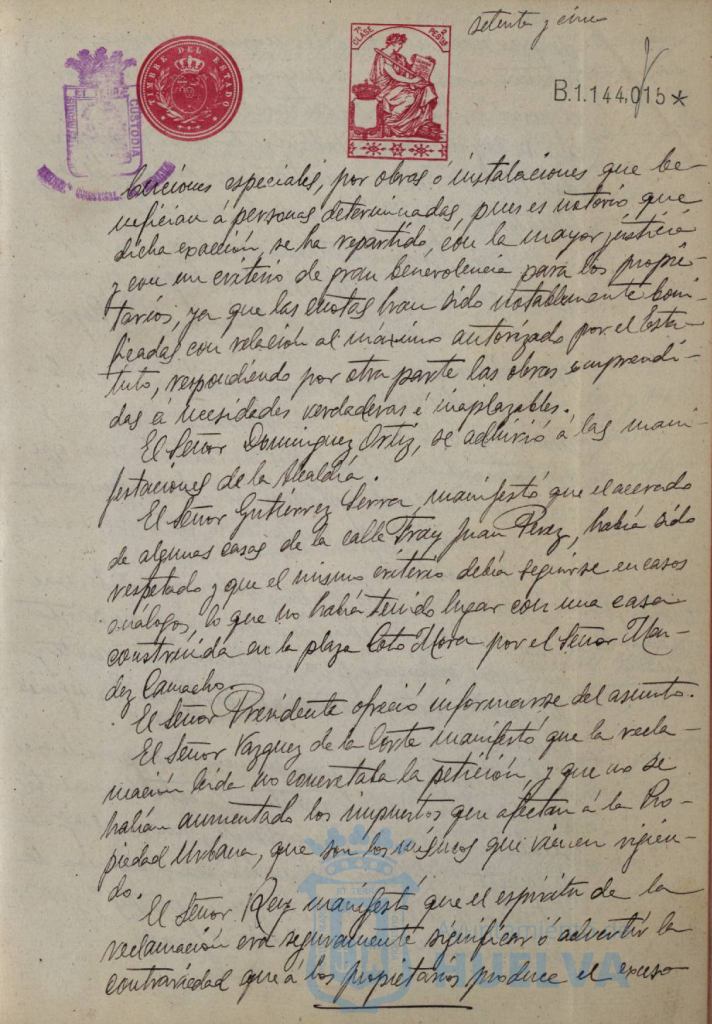 setenta y cinco
TIMBRE DEL ESTADO
7ª CLASE 2 PESTAS
B.1.144,015*
CUSTODIA
buciones especiales, por obras ó instalaciones que be-
nefician á personas determinadas, pues es notorio que
dicha exacción, se ha repartido, con la mayor justicia
y con un criterio de gran benevolencia para los propie-
tarios, ya que las cuotas han sido notablemente boni-
ficadas con relación al máximo autorizado por el Esta-
tuto, respondiendo por otra parte las obras emprendi-
das á necesidades verdaderas é inaplazables.
El Señor Dominguez Ortiz, se adhirió á las mani-
festaciones de la Alcaldía.
El Señor Gutiérrez Serra, manifestó que el acerado
de algunas casas de la calle Fray Juan Perez, había sido
respetado y que el mismo criterio debía seguirse en casos
análogos, lo que no había tenido lugar con una casa
construida en la plaza Coto Mora por el Señor Man-
dez Camacho.
El Señor Presidente ofreció informarse del asunto.
El Señor Vazquez de la Corte manifestó que la recla-
mación leida no concretaba la petición, y que no se
habían aumentado los impuestos que afectan á la Pro-
piedad Urbana, que son los mismos que vienen rigien-
do.
El Señor Ruiz manifestó que el espíritu de la
reclamación era seguramente significar ó advertir la
contrariedad que á los propietarios produce el exceso
HUELVA